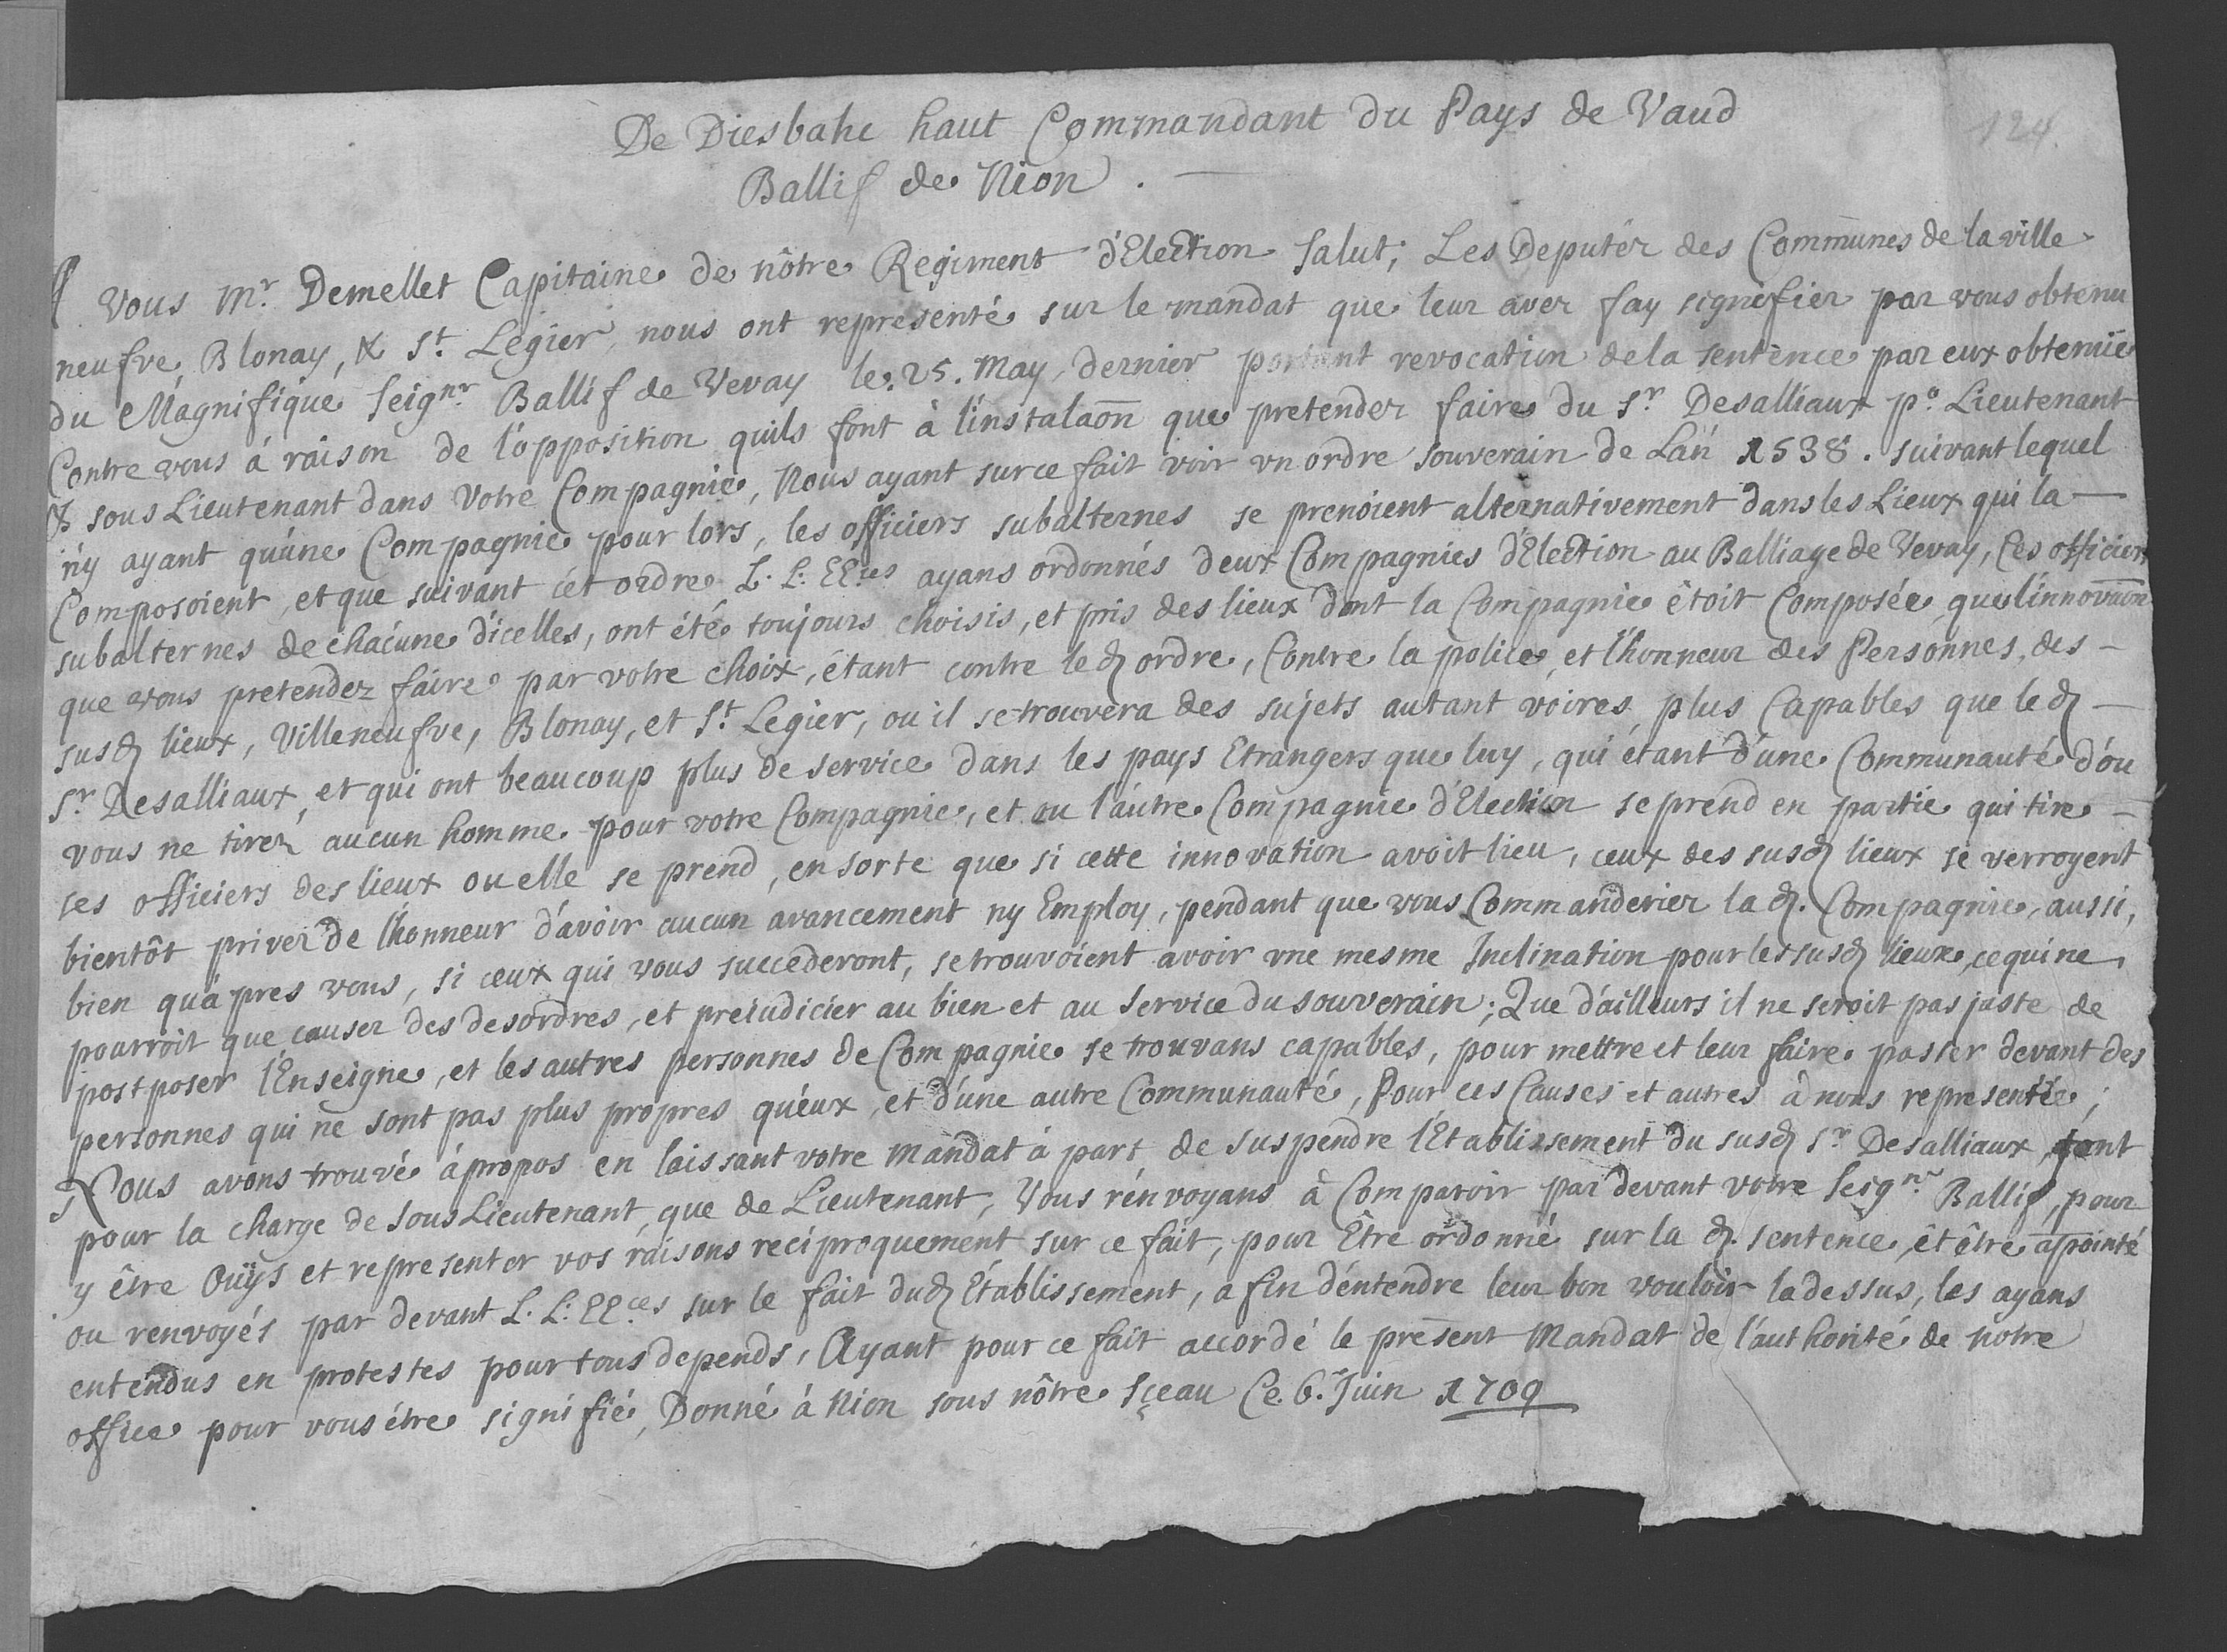 De Diesbahc haut Commandant du Pays de Vaud
124.
Ballif de Nion .
A Vous Mr. Demellet Capitaine de nôtre Regiment d'Election Salut; Les Deputéz des Communes de la ville
neufve, Blonay, & St. Legier, nous ont representé sur le mandat que leur avez fay signefier par vous obtenu
du Magnifique Seignr. Ballif de Vevay le. 25. May, dernier portant revocation de la sentence par eux obtenuë
Contre vous à raison de l'opposition quils font à l'instalaōn que pretendez faire du Sr. Desalliaux po. Lieutenant
& sous Lieutenant dans Votre Compagnie, Nous ayant sur ce fait voir vn ordre souverain de Lan 1538. suivant lequel
n'y ayant qu'une Compagnie pour lors, les officiers subalternes se prenoient alternativement dans les Lieux qui la
Composoient, et que suivant cet ordre L. L: EE.ces ayans ordonnés deux Compagnies d'Election au Balliage de Vevay, Ces officiers
subalternes de chacune d'icelles, ont été toujours choisis, et pris des lieux dont la Compagnie étoit Composée, que l'innovaōn
que vous pretendez faire par votre choix, étant contre le d. ordre, Contre la police, et l'honneur des Personnes, des
susd. lieux, Villeneufve, Blonay, et St. Legier, ou il se trouvera des sujets autant voires plus Capables que le d.
Sr. Desalliaux, et qui ont beaucoup plus de service dans les pays Etrangers que luy, qui étant d'une Communauté d'ou
vous ne tirez aucun homme pour votre Compagnie, et ou l'autre Compagnie d'Election se prend en partie qui tire
ses officiers des lieux ou elle se prend, en sorte que si cette innovation avoit lieu, ceux des susd. lieux se verroyent
bientôt privez de l'honneur d'avoir aucun avancement ny Employ, pendant que vous Commanderiez la d. Compagnie, aussi,
bien qu'apres vous, si ceux qui vous succederont, se trouvoient avoir vne mesme Inclination pour les susd. lieux, ce qui ne
pourroit que causer des desordres, et preiudicier au bien et au service du souverain; Que d'ailleurs il ne seroit pas juste de
postposer l'Enseigne, et les autres personnes de Compagnie se trouvans capables, pour mettre et leur faire passer devant des
personnes qui ne sont pas plus propres qu'eux, et d'une autre Communauté, Pour ces Causes et autres à nous representée;
Nous avons trouvé à propos en laissant votre Mandat à part de suspendre l'Etablissement du susd. Sr. Desalliaux, tant
pour la charge de Sous Lieutenant, que de Lieutenant, Vous renvoyans à Comparoir par devant votre Seignr. Ballif, pour
y être Ouÿs et representer vos raisons reciproquement sur ce fait, pour Être ordonné sur la d. sentence, êt être apointé
ou renvoyés par devant L. L: EE.ces sur le fait dud. Établissement, afin d'entendre leur bon vouloir la dessus, les ayans
entendus en protestes pour tous depends, Ayant pour ce fait accordé le present Mandat de l'authorité de notre
office pour vous être signifié, Donné à Nion sous nôtre sçeau Ce. 6. Juin 1709